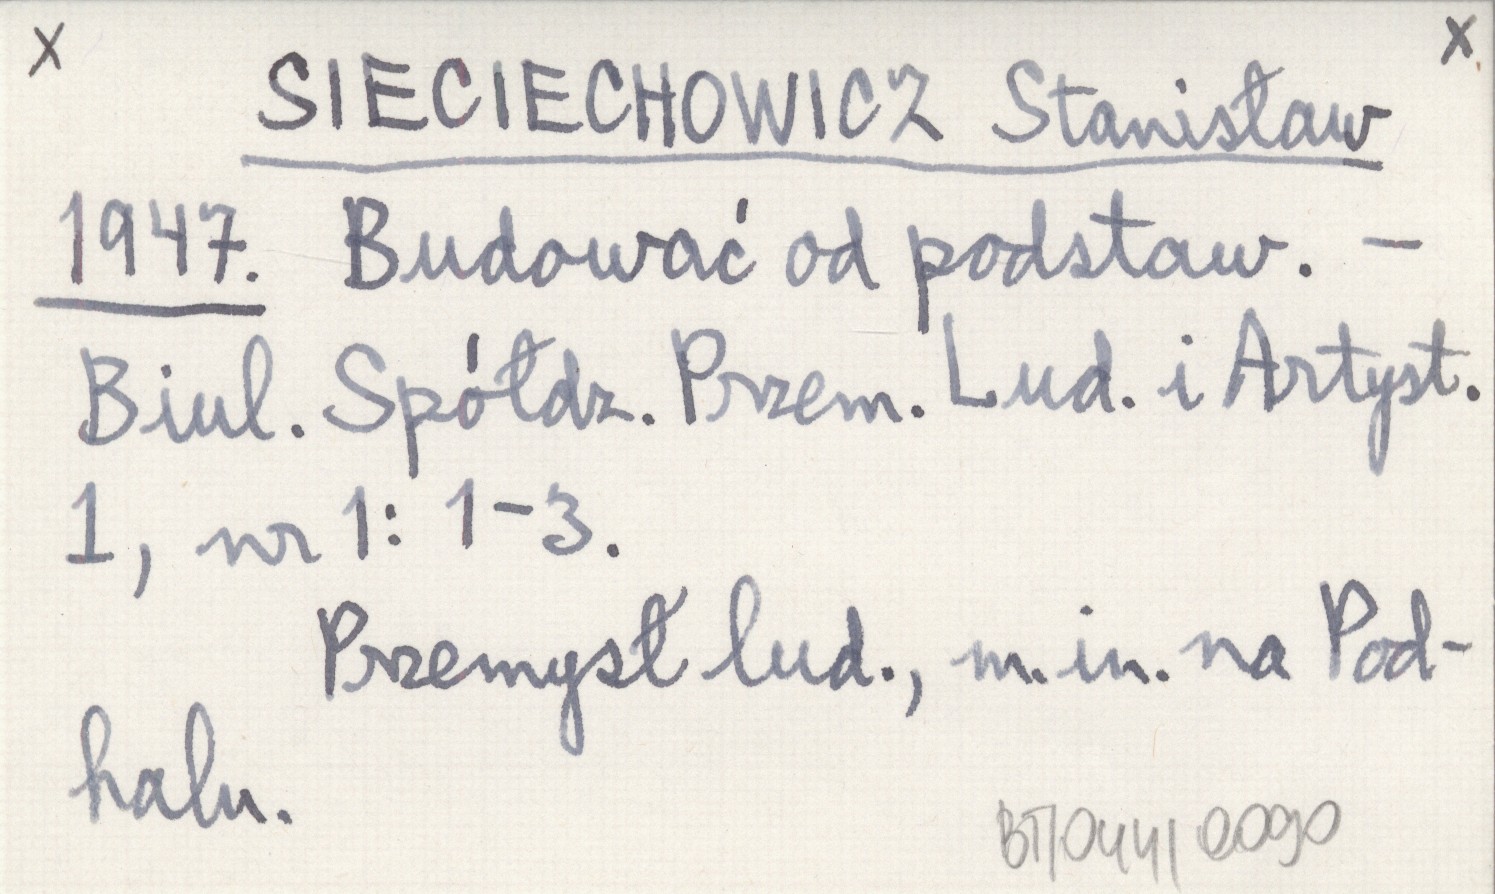 x x
SIECIECHOWICZ Stanisław
1947. Budować od podstaw. –
Biul. Spółdz. Przem. Lud. i Artyst.
1, nr 1: 1-3.
Przemysł lud., m.in. na Pod-
halu.
BT/044/0090